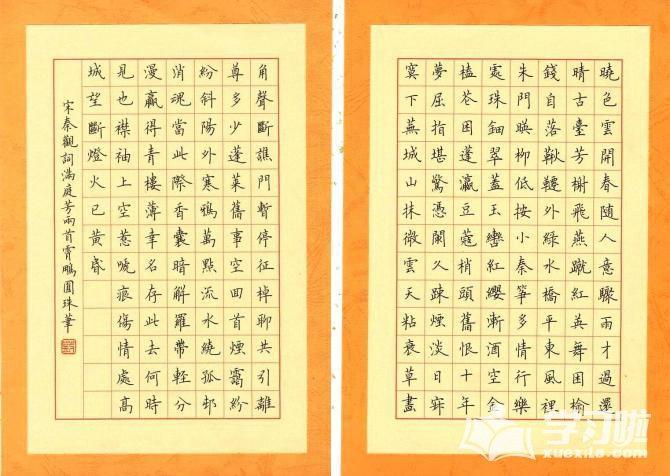 曉色雲開春隨人意驟雨才過還
晴古臺芳榭飛燕蹴紅英舞困榆
錢自落鞦韆外綠水橋平東風裡
朱門暎柳低按小秦箏多情行樂
處珠鈿翠蓋玉轡紅纓漸酒空金
榼花困蓬瀛豆蔻梢頭舊恨十年
夢屈指堪驚憑闌久踈煙淡日寂
寞下蕪城山抹微雲天粘衰草畫
角聲斷譙門暫停征棹聊共引離
尊多少蓬萊舊事空回首煙靄紛
紛斜陽外寒鴉萬點流水繞孤邨
消魂當此際香囊暗解羅帶輕分
漫贏得青樓薄幸名存此去何時
見也襟袖上空惹嗁痕傷情處高
城望斷燈火已黃昏
宋秦觀詞滿庭芳兩首霄鵬圓珠筆
学习啦
xuexila.com